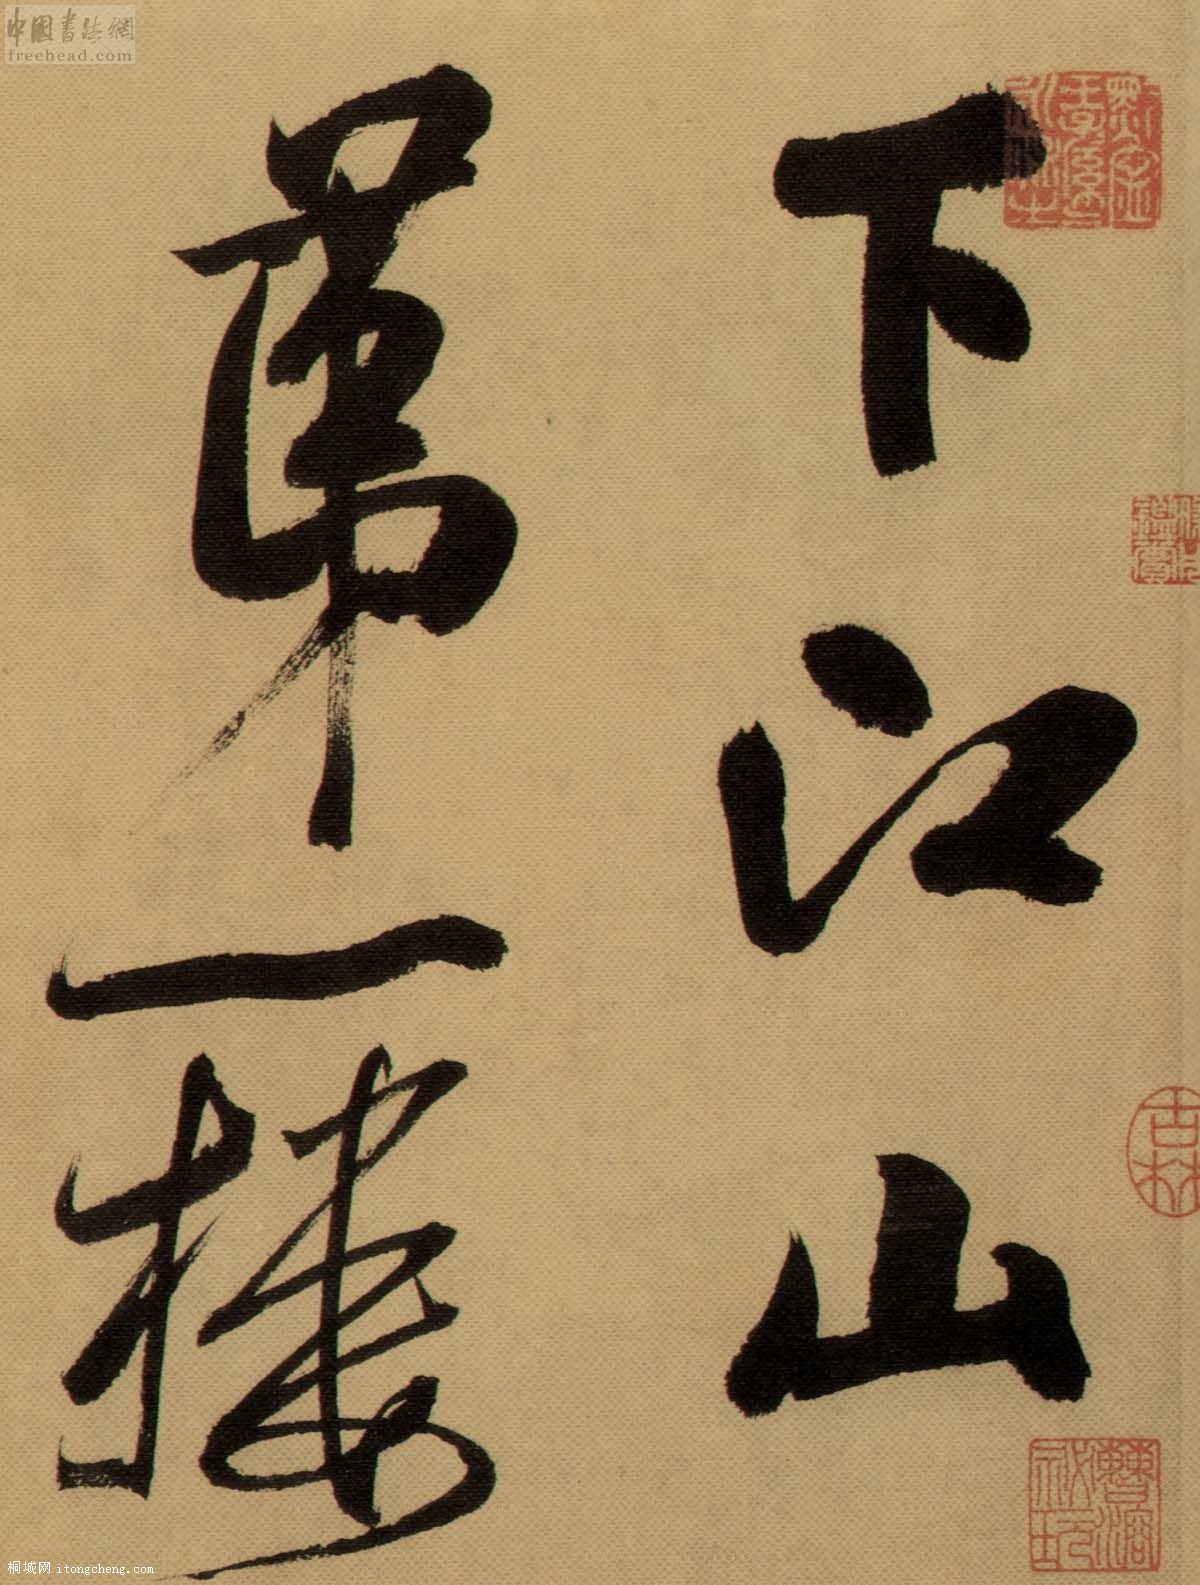 中國書法網
freehead.com
下江山
第一樓
桐城网 itongcheng.com